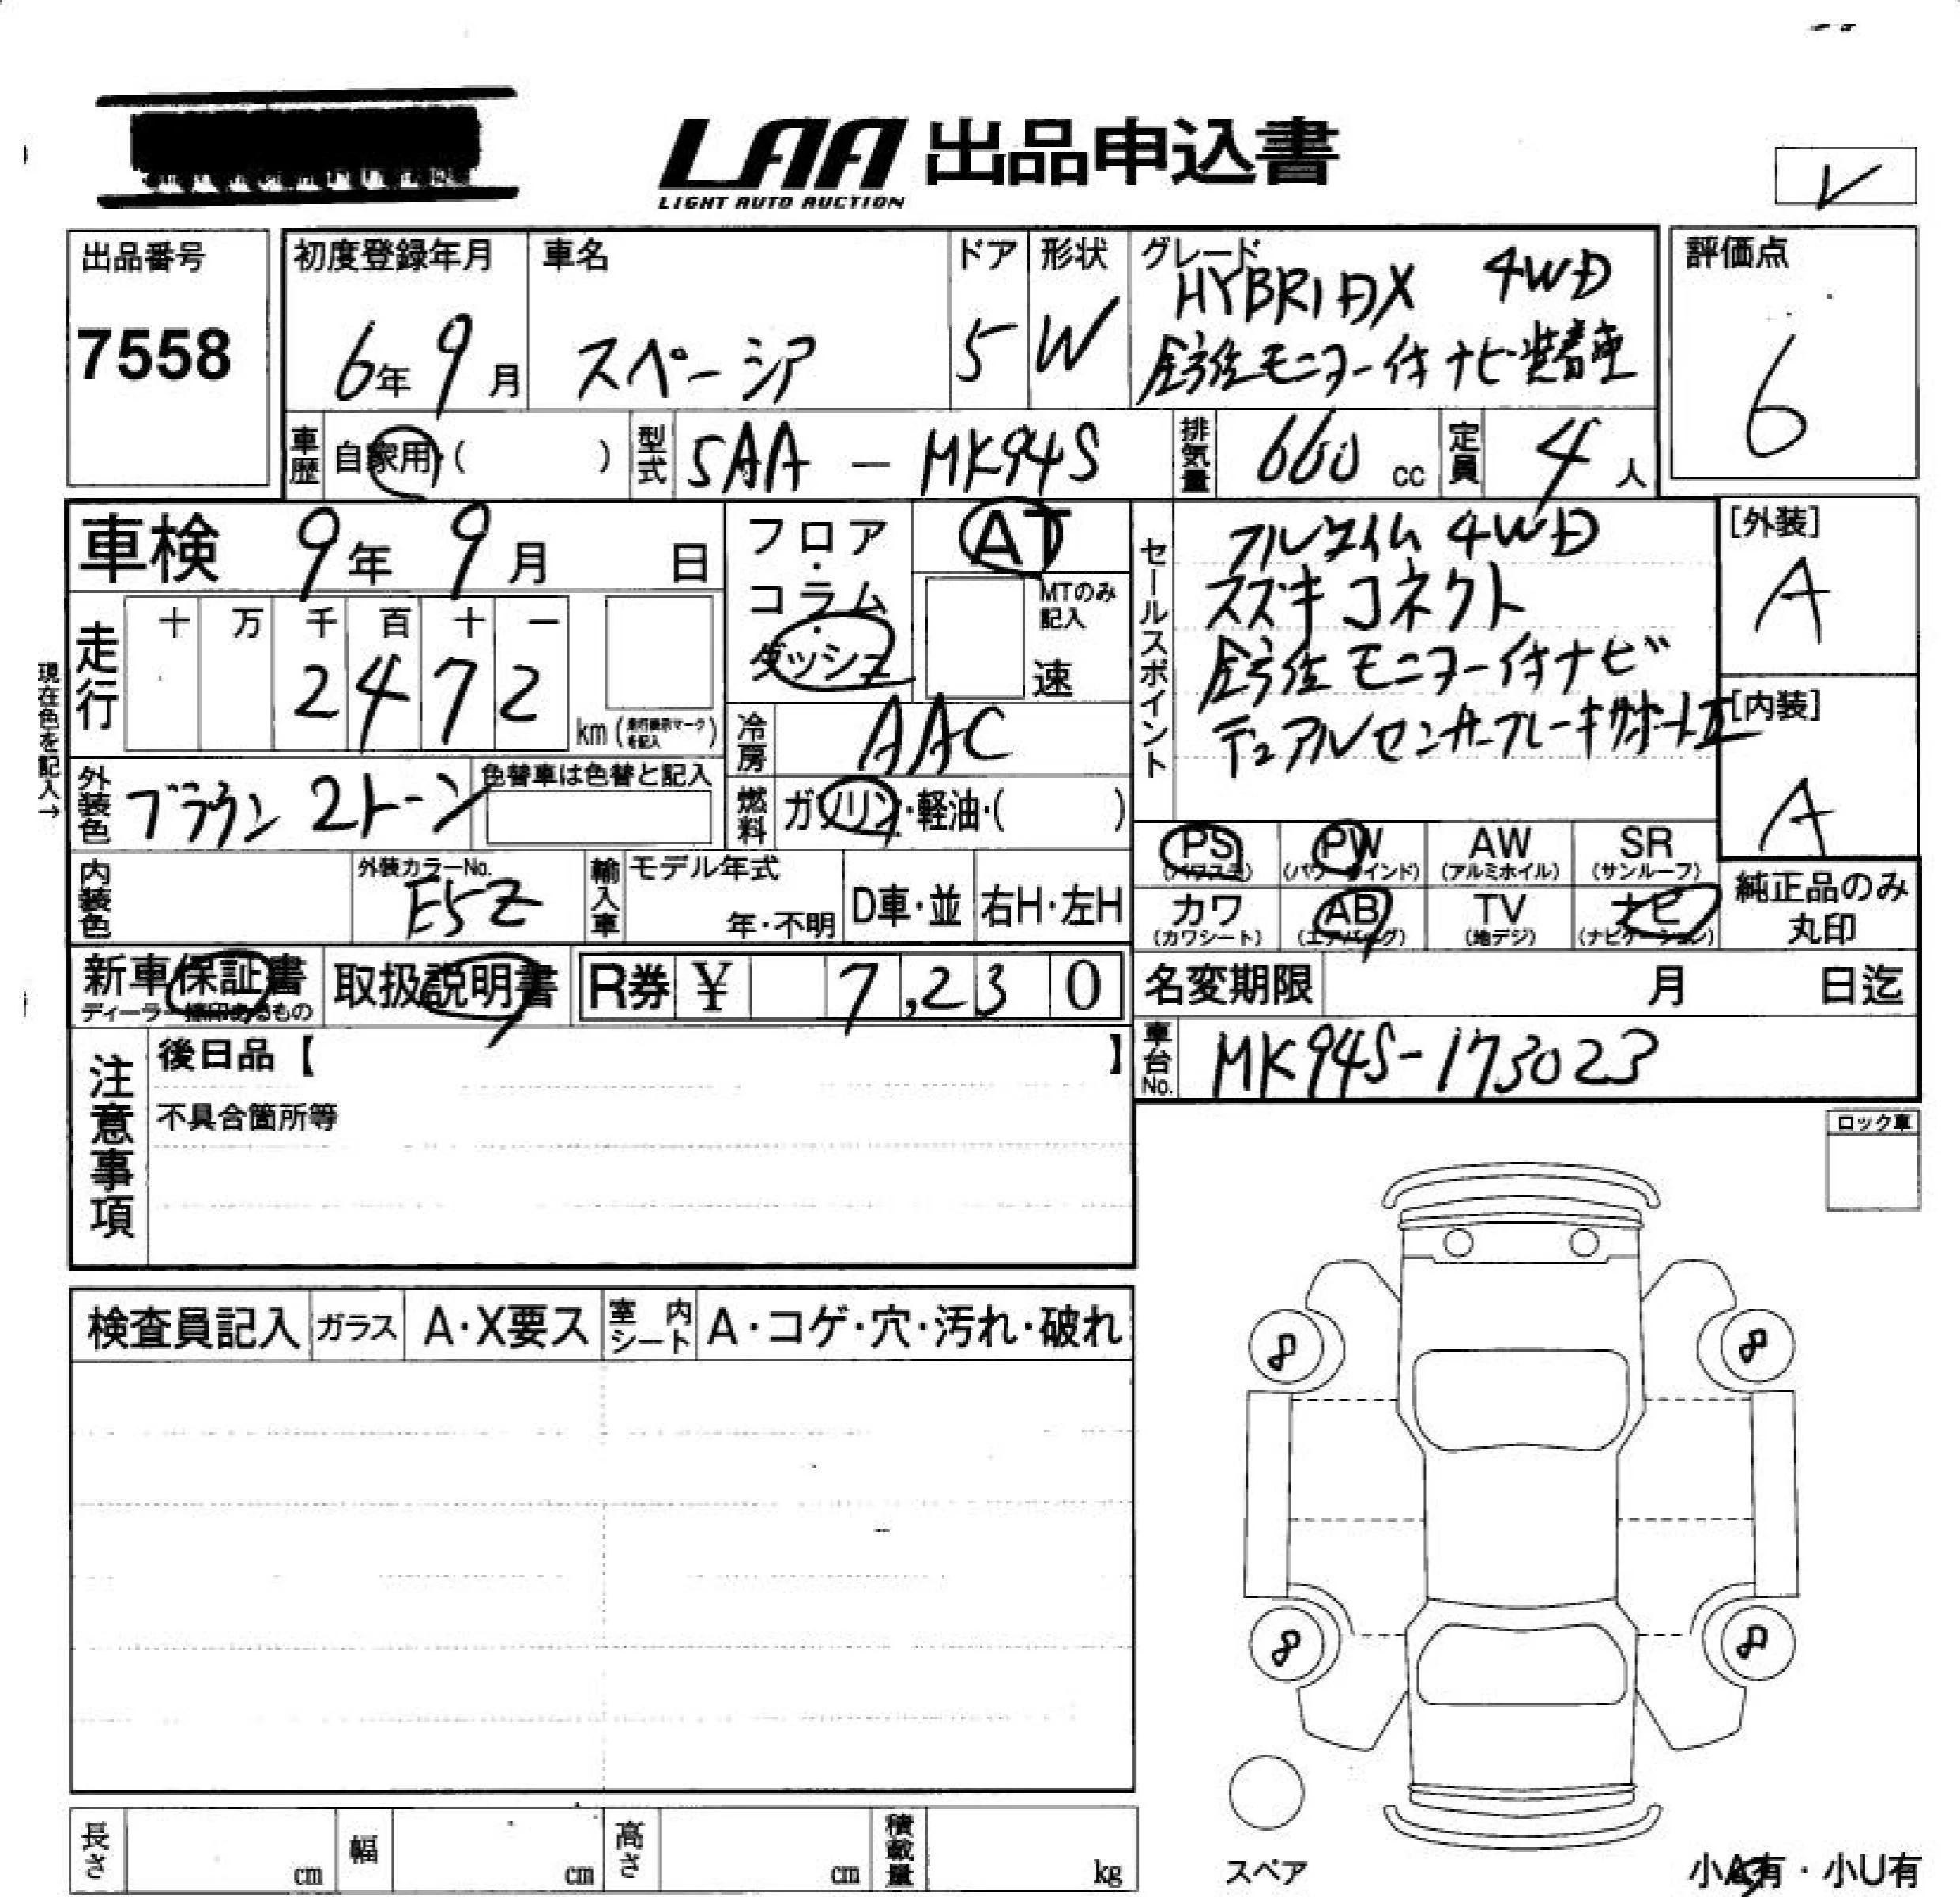 LAA 出品申込書
LIGHT AUTO AUCTION
レ
出品番号
7558
初度登録年月
6年 9月
車名
スペーシア
ドア
5
形状
W
グレード
HYBRID X 4WD
全方位モニター付ナビ装着車
評価点
6
車歴
自家用・( )
型式
5AA - MK94S
排気量
660 cc
定員
4人
車検 9年 9月 日
走行
十 万 千 百 十 一
2 4 7 2
km (走行表示マークを記入)
現在色を記入→
フロア・
コラム・
ダッシュ
AT
MTのみ
記入
速
冷房
AAC
外装色
ブラウン 2トーン
色替車は色替と記入
燃料
ガソリン・軽油・( )
セールスポイント
フルタイム 4WD
スズキコネクト
全方位モニター付ナビ
デュアルセンサーブレーキサポートⅡ
[外装]
A
[内装]
A
内装色
外装カラーNo.
E5Z
輸入車
モデル年式
年・不明
D車・並
右H・左H
PS
(パワステ)
PW
(パワーウインド)
AW
(アルミホイル)
SR
(サンルーフ)
カワ
(カワシート)
AB
(エアバッグ)
TV
(地デジ)
ナビ
(ナビゲーション)
純正品のみ
丸印
新車保証書
ディーラー捺印あるもの
取扱説明書
R券 ¥ 7,230
名変期限 月 日迄
車台No.
MK94S-173023
注意事項
後日品【 】
不具合箇所等
ロック車
検査員記入
ガラス
A・X要ス
室内シート
A・コゲ・穴・汚れ・破れ
8
8
8
8
スペア
長さ cm
幅 cm
高さ cm
積載量 kg
小A有・小U有